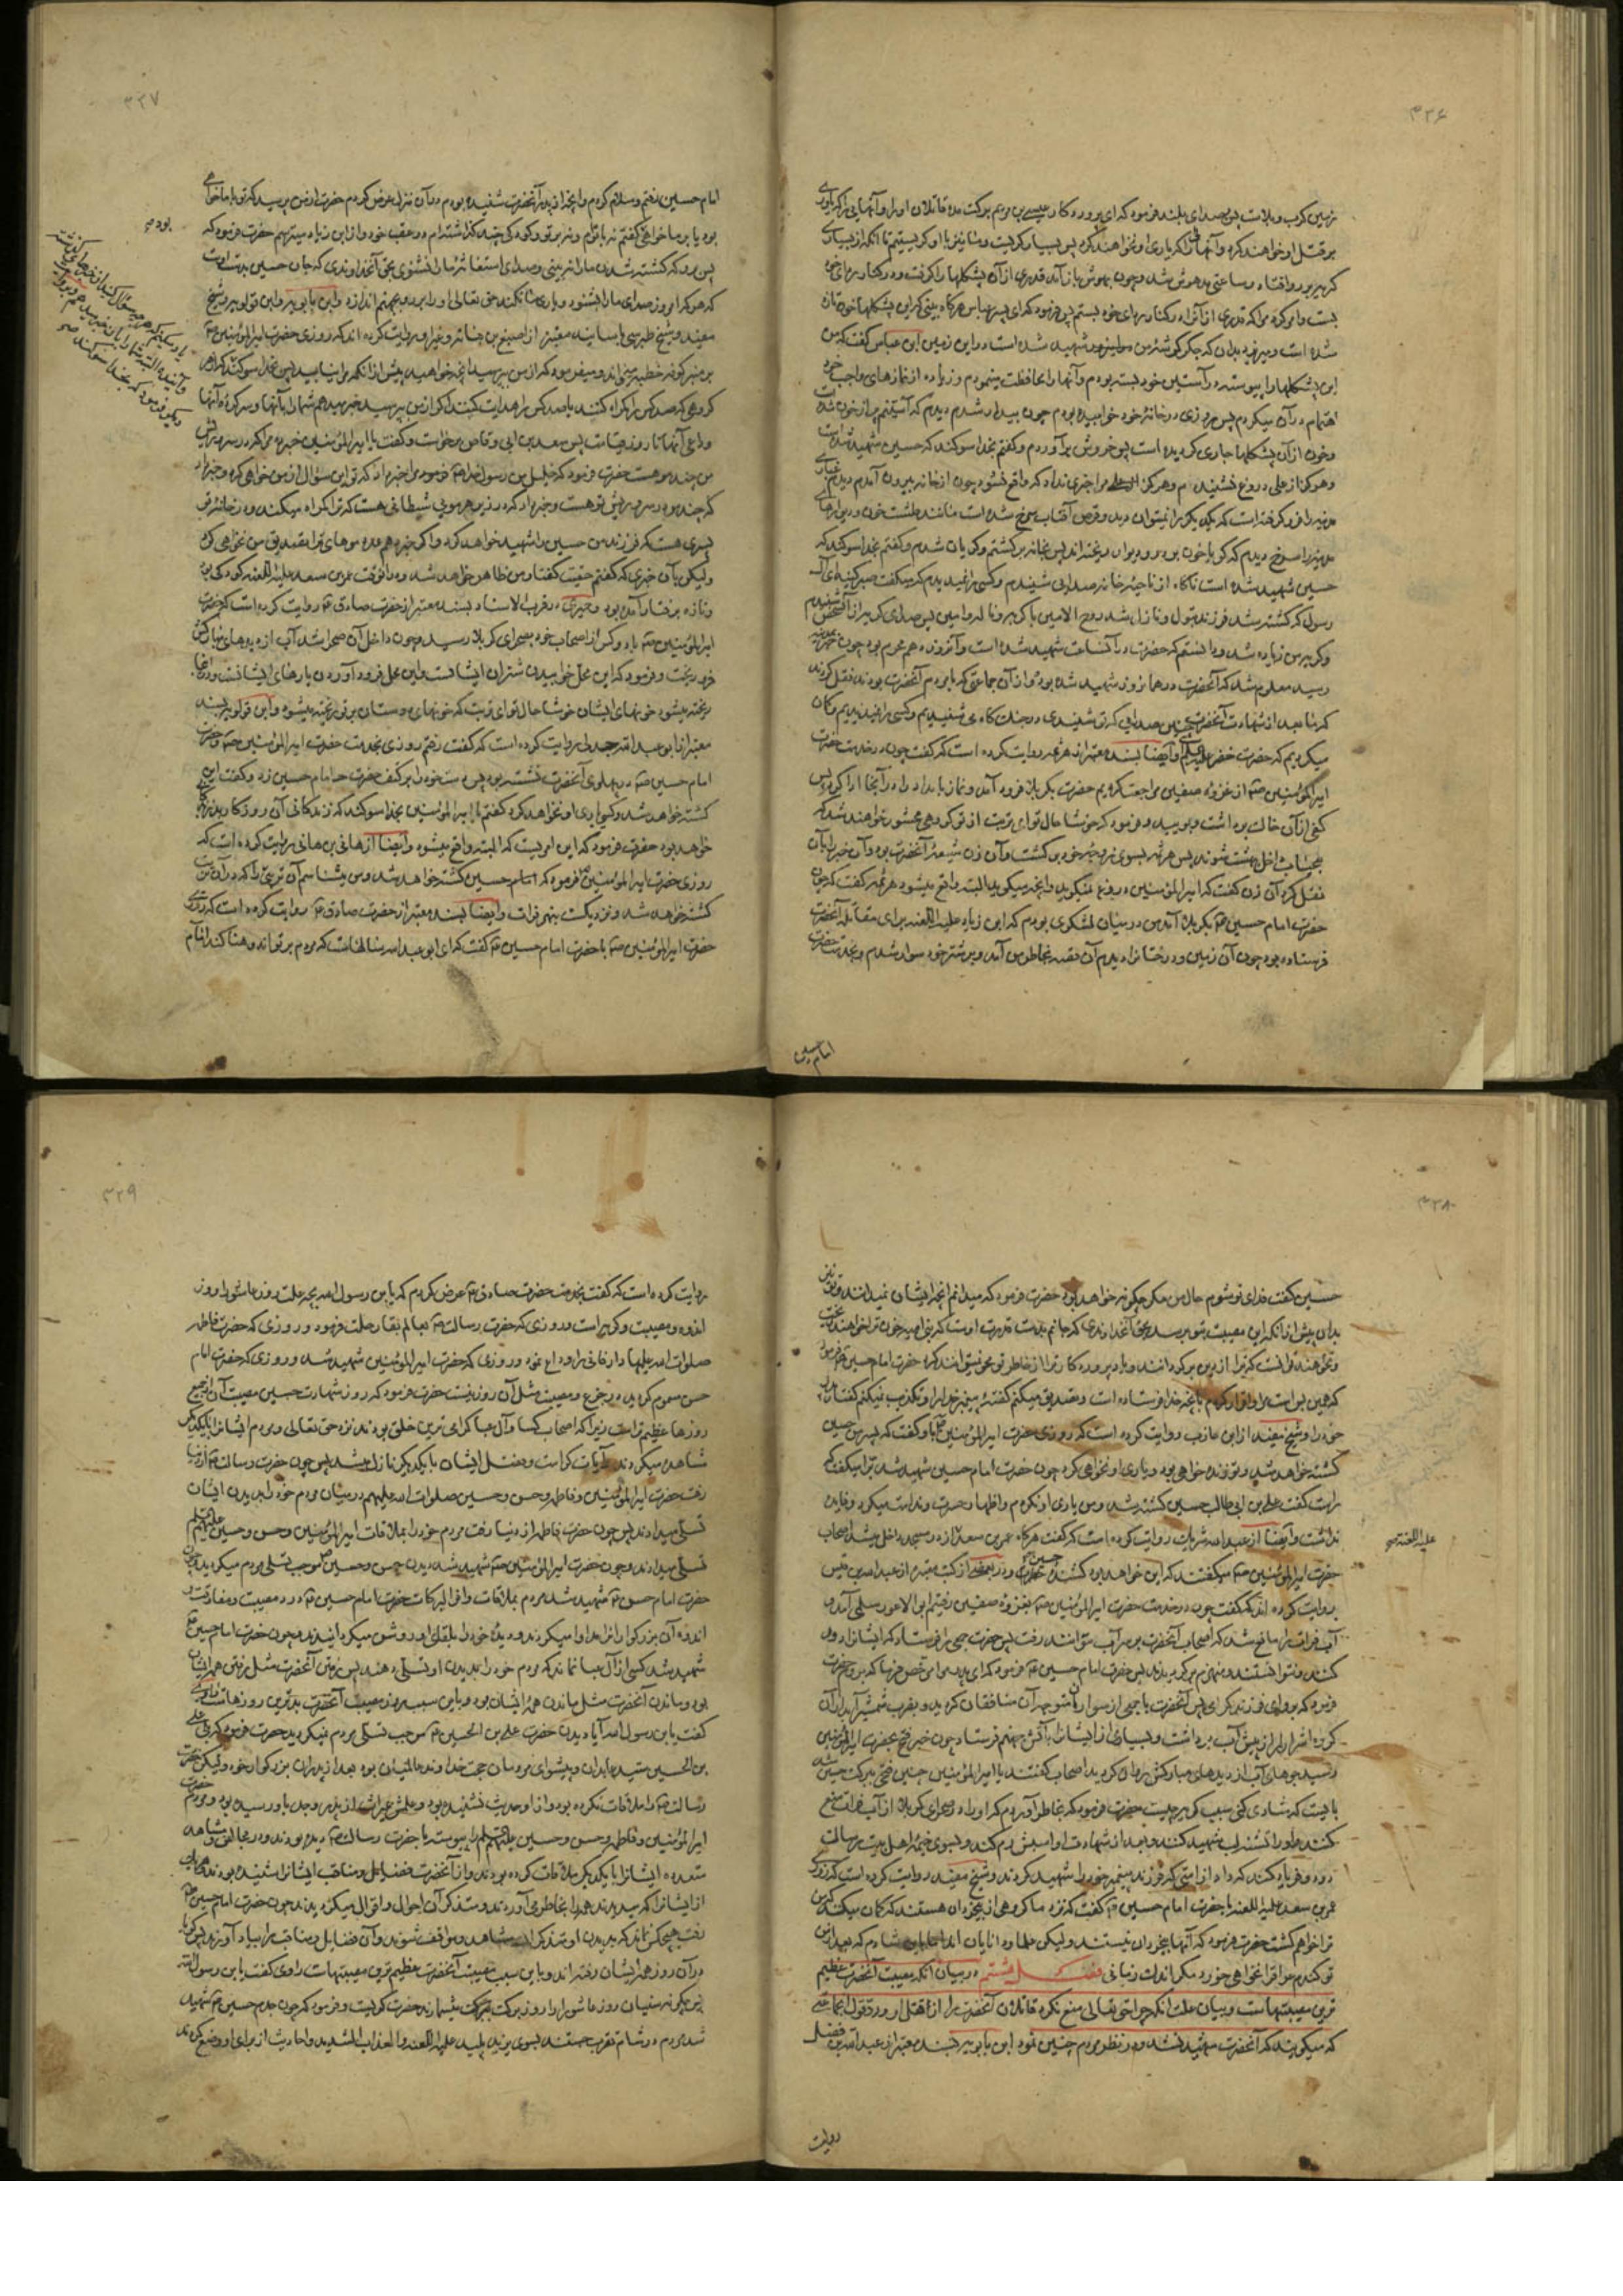 ۳۲۶
زمین کرب و بلاست پس بصدای بلند فرمود که ای پروردگار عیسی بن مریم برکت مده قاتلان او را و آنهائی را که یاوری
بر قتل او خواهند کرد و آنها را که یاری او نخواهند کرد پس بسیار گریست و ما نیز با او گریستیم تا آنکه از بسیاری
گریه بر رو افتاد و ساعتی مدهوش شد و چون بهوش باز آمد قدری از آن پشکلها را گرفت و در کنار ردای خود
بست و امر کرد مرا که قدری از آنرا در کنار ردای خود بستم پس فرمود که ای پسر عباس هرگاه بینی که این پشکلها خون تازه
شده است و میریزد بدان که جگر گوشه من مولی تو شهید شده است در این زمین ابن عباس گفت که من
این پشکلها را پیوسته در آستین خود بسته بودم و آنها را محافظت مینمودم و زیاده از نمازهای واجب خود
اهتمام در آن میکردم پس روزی در خانه خود خوابیده بودم چون بیدار شدم دیدم که آستینم پر از خون شده است
و خون از آن پشکلها جاری گردیده است پس خروش برآوردم و گفتم بخدا سوگند که حسین شهید شده است
و هرگز از علی دروغ نشنیدم و هرگز مرا خبری نداد که واقع نشود چون از خانه بیرون آمدم دیدم غباری
مدینه را فرو گرفته است که یکدیگر را نمیتوان دید و قرص آفتاب سرخ شده است مانند طشت خون و دیوارهای
مدینه را سرخ دیدم که گویا خون بر در و دیوار ریخته اند پس بخانه برگشتم و گریان شدم و گفتم بخدا سوگند که
حسین شهید شده است ناگاه از ناحیه خانه صدایی شنیدم و کسی را ندیدم که میگفت صبر کنید ای آل
رسول که کشته شد فرزند بتول و نازل شد روح الامین با گریه و ناله و انین پس صدای گریه از آن شخص شنیدم
و گریه من زیاده شد و دانستم که حضرت در آن ساعت شهید شده است و آنروز دهم محرم بود چون خبر بمدینه
رسید معلوم شد که آنحضرت در همان روز شهید شده بود و از آن جماعتی که با مردم آنحضرت بودند نقل کردند
که ما بعد از شهادت آنحضرت چنین صدایی که تو شنیدی در جنگ گاه می شنیدیم و کسی را نمیدیدیم و گمان
میکردیم که حضرت خضر علیه السلم و ایضا بسند معتبر از هرثمه روایت کرده است که گفت چون در خدمت حضرت
امیرالمؤمنین از غزوه صفین مراجعت کردیم حضرت بکربلا فرود آمد و نماز بامداد را در آنجا ادا کرد پس
کفی از آن خاک برداشت و بویید و فرمود که خوشا حال تو ای تربت از تو گروهی محشور خواهند شد که
بیحساب داخل بهشت شوند پس هرثمه بسوی زوجه خود برگشت و آن زن شیعه آنحضرت بود و آن خبر را با آن
نقل کرد آن زن گفت که امیرالمؤمنین دروغ نمیگوید و آنچه میگوید البته واقع میشود هرثمه گفت که چون
حضرت امام حسین بکربلا آمد من در میان لشکری بودم که ابن زیاد علیه اللعنه برای مقاتله آنحضرت
فرستاده بود چون آن زمین و درختانرا دیدم آن قصه بخاطر من آمد و بر شتر خود سوار شدم و بخدمت حضرت
امام حسین
۳۲۷
امام حسین رفتم و سلام کردم و آنچه از پدر آنحضرت شنیده بودم در آن منزل عرض کردم حضرت از من پرسید که تو با ما خواهی
بود یا بر ما خواهی گفتم نه با توام و نه بر تو و کودکی چند گذاشته ام در عقب خود و از ابن زیاد میترسم حضرت فرمود که
پس برو که کشته شدن ما را نه بینی و صدای استغاثه ما را نشنوی بحق آنخداوندی که جان حسین بدست اوست
که هر که امروز صدای ما را بشنود و یاری ما نکند حق تعالی او را برو در جهنم اندازد و ابن بابویه و ابن قولویه و شیخ
مفید و شیخ طبرسی باسانید معتبر از اصبغ بن نباته و غیر او روایت کرده اند که روزی حضرت امیرالمؤمنین
بر منبر کوفه خطبه میخواند و میفرمود که از من بپرسید آنچه خواهید پیش از آنکه مرا نیابید پس بخدا سوگند که از هر
گروهی که صد کس را گمراه کنند یا صد کس را هدایت کنند اگر از من بپرسید خبر میدهم شما را بآنها و سرکرده آنها
و داعی آنها تا روز قیامت پس سعد بن ابی وقاص برخواست و گفت یا امیرالمؤمنین خبر ده مرا که در سر و ریش
من چند مو هست حضرت فرمود که خلیل من رسول خدا فرمود مرا خبر داد که تو این سؤال از من خواهی کرد و خبر داد
که چند مو در سر و ریش تو هست و خبر داد که در زیر هر مویی شیطانی هست که ترا گمراه میکند و در خانه تو
پسری هست که فرزند من حسین را شهید خواهد کرد و اگر خبر دهم عدد موهای ترا تصدیق من نخواهی کرد
ولیکن بآن خبری که گفتم حقیت گفتار من ظاهر خواهد شد و در آنوقت عمر بن سعد علیه اللعنه کودکی بود
و تازه برفتار آمده بود و حمیری در قرب الاسناد بسند معتبر از حضرت صادق روایت کرده است که حضرت
امیرالمؤمنین با دو کس از اصحاب خود بصحرای کربلا رسید و چون داخل آن صحرا شد آب از دیدهای مبارکش
فرو ریخت و فرمود که این محل خوابیدن شتران ایشانست و این محل فرود آوردن بارهای ایشانست و در اینجا
ریخته میشود خونهای ایشان خوشا حال تو ای تربت که خونهای دوستان بر تو ریخته میشود و ابن قولویه بسند
معتبر از ابو عبدالله جدلی روایت کرده است که گفت رفتم روزی بخدمت حضرت امیرالمؤمنین و حضرت
امام حسین در پهلوی آنحضرت نشسته بود پس دست خود را بر کتف حضرت امام حسین زد و گفت این
کشته خواهد شد و کسی یاری او نخواهد کرد گفتم یا امیرالمؤمنین بخدا سوگند که زندگانی آن روزگار بد زندگانی
خواهد بود حضرت فرمود که این امریست که البته واقع میشود و ایضا از هانی بن هانی روایت کرده است که
روزی حضرت امیرالمؤمنین فرمود که امام حسین کشته خواهد شد و من میشناسم آن تربتی را که در آن
کشته خواهد شد و نزدیکست بنهر فرات و ایضا بسند معتبر از حضرت صادق روایت کرده است که روزی
حضرت امیرالمؤمنین با حضرت امام حسین گفت که ای ابو عبدالله
بودم
۳۲۸
حسین گفت فدای تو شوم حال من مگر چگونه خواهد بود حضرت فرمود که میدانم آنچه ایشان نمیدانند و تو نیز
بدان پیش از آنکه این مصیبت بتو برسد بحق آنخداوندی که جانم بدست قدرت اوست که بنی امیه خون ترا خواهند ریخت
و نخواهند توانست که ترا از دین برگردانند و یاد پروردگار ترا از خاطر تو محو نتوانند کرد حضرت امام حسین فرمود
که همین بس است مرا و اقرار کردم بآنچه خدا فرستاده است و تصدیق میکنم گفته پیغمبر خدا را و تکذیب نمیکنم گفتار پدر
خود را و شیخ مفید از ابن عازب روایت کرده است که روزی حضرت امیرالمؤمنین باو گفت که پسر من حسین
کشته خواهد شد و تو زنده خواهی بود و یاری او نخواهی کرد چون حضرت امام حسین شهید شد براء میگفت که
راست گفت علی بن ابی طالب حسین کشته شد و من یاری او نکردم و اظهار حسرت و ندامت میکرد و فایده
نداشت و ایضا از عبدالله شریک روایت کرده است که گفت هرگاه عمر بن سعد از در مسجد داخل میشد اصحاب
علیه اللعنه
حضرت امیرالمؤمنین میگفتند که این خواهد بود کشنده حسین و در بعضی از کتب معتبره از عبدالله بن قیس
روایت کرده اند که گفت چون در خدمت حضرت امیرالمؤمنین بغزوه صفین رفتیم ابوالاعور سلمی آمد و
آب فرات را مانع شد که اصحاب آنحضرت بر سر آب نتوانند رفت پس حضرت جمعی را فرستاد که ایشانرا دور
کنند و نتوانستند و منهزم برگردیدند پس حضرت امام حسین فرمود که ای پدر مرا مرخص فرما که بروم حضرت
فرمود که برو ای فرزند گرامی پس آنحضرت با جمعی از سواران متوجه آن منافقان گردید و بضرب شمشیر آبدار آن
گروه اشرار را از پیش آب برداشت و بسیاری از ایشانرا بآتش جهنم فرستاد چون خبر فتح بحضرت امیرالمؤمنین
رسید جوهای آب از دیدهای مبارکش روان گردید اصحاب گفتند یا امیرالمؤمنین چنین فتحی ببرکت حسین شد
بایست که شادی کنی سبب گریه چیست حضرت فرمود که بخاطر آوردم که او را در صحرای کربلا از آب فرات منع
کنند و او را تشنه لب شهید کنند و بعد از شهادت او اسبش رم کند و بسوی خیمه اهل بیت رسالت
دود و فریاد کند که داد از امتی که فرزند پیغمبر خود را شهید کردند و شیخ مفید روایت کرده است که روزی
عمر بن سعد علیه اللعنه با حضرت امام حسین گفت که نزد ما گروهی از بیخردان هستند که گمان میکنند که من
ترا خواهم کشت حضرت فرمود که آنها بیخردان نیستند ولیکن علما و دانایان اند اما باین شادم که بعد از من
تو گندم عراق را نخواهی خورد مگر اندک زمانی فصل هشتم در بیان آنکه مصیبت آنحضرت عظیم
ترین مصیبتهاست و بیان علت آنکه چرا حق تعالی منع نکرد قاتلان آنحضرت را از قتل او و رد قول جماعتی
که میگویند که آنحضرت شهید نشد و در نظر مردم چنین نمود ابن بابویه بسند معتبر از عبدالله بن فضل
روایت
۳۲۹
روایت کرده است که گفت بخدمت حضرت صادق عرض کردم که یابن رسول الله بچه علت روز عاشورا روز
اندوه و مصیبت و گریه است و روزی که حضرت رسالت بعالم بقا رحلت فرمود و روزی که حضرت فاطمه
صلوات الله علیها دار فانی را وداع نمود و روزی که حضرت امیرالمؤمنین شهید شد و روزی که حضرت امام
حسن مسموم گردید در جزع و مصیبت مثل آن روز نیست حضرت فرمود که روز شهادت حسین مصیبت آن از جمیع
روزها عظیم تر است زیرا که اصحاب کسا و آل عبا گرامی ترین خلق بودند نزد حق تعالی و مردم ایشانرا با یکدیگر
مشاهده میکردند و آیات کرامت و فضل ایشان با یکدیگر نازل میشد پس چون حضرت رسالت از دنیا
رفت حضرت امیرالمؤمنین و فاطمه و حسن و حسین صلوات الله علیهم در میان مردم خود را بدیدن ایشان
تسلی میدادند پس چون حضرت فاطمه از دنیا رفت مردم خود را بملاقات امیرالمؤمنین و حسن و حسین علیهم السلم
تسلی میدادند و چون حضرت امیرالمؤمنین شهید شد دیدن حسن و حسین موجب تسلی مردم میگردید چون
حضرت امام حسن شهید شد مردم بملاقات وافر البرکات حضرت امام حسین درد مصیبت و مفارقت و
اندوه آن بزرگوارانرا مداوا میکردند و دیده خود را بلقای او روشن میگردانیدند و چون حضرت امام حسین
شهید شد کسی از آل عبا نماند که مردم خود را بدیدن او تسلی دهند پس رفتن آنحضرت مثل رفتن همه ایشان
بود و ماندن آنحضرت مثل ماندن همه ایشان بود و باین سبب روز مصیبت آنحضرت بدترین روزهاست راوی
گفت یابن رسول الله آیا دیدن حضرت علی بن الحسین موجب تسلی مردم نمیگردید حضرت فرمود که بلی علی
بن الحسین سید عابدان و پیشوای مردمان و حجت خداوند عالمیان بود بعد از پدران بزرگوار خود ولیکن حضرت
رسالت را ملاقات نکرده بود و از او حدیث نشنیده بود و علمش بمیراث از پدر و جد باو رسیده بود و مردم حضرت
امیرالمؤمنین و فاطمه و حسن و حسین علیهم السلم را پیوسته با حضرت رسالت دیده بودند و در مجالس و مشاهد
متعدده ایشانرا با یکدیگر ملاقات کرده بودند و از آنحضرت فضایل و مناقب ایشانرا شنیده بودند هر یک
از ایشانرا که میدیدند همه را بخاطر می آوردند و متذکر آن احوال و اقوال میگردیدند چون حضرت امام حسین
رفت هیچکس نماند که بدیدن او متذکر آن مشاهد و مواقف شوند و آن فضایل و مناقب را بیاد آورند پس گویا
در آن روز همه ایشان رفته اند و باین سبب مصیبت آنحضرت عظیم ترین مصیبتهاست راوی گفت یابن رسول الله
پس چگونه سنیان روز عاشورا را روز برکت میشمارند حضرت گریست و فرمود که چون جدم حسین شهید
شد مردم در شام تقرب جستند بسوی یزید پلید علیه اللعنة والعذاب الشدید و احادیث از برای او وضع کردند